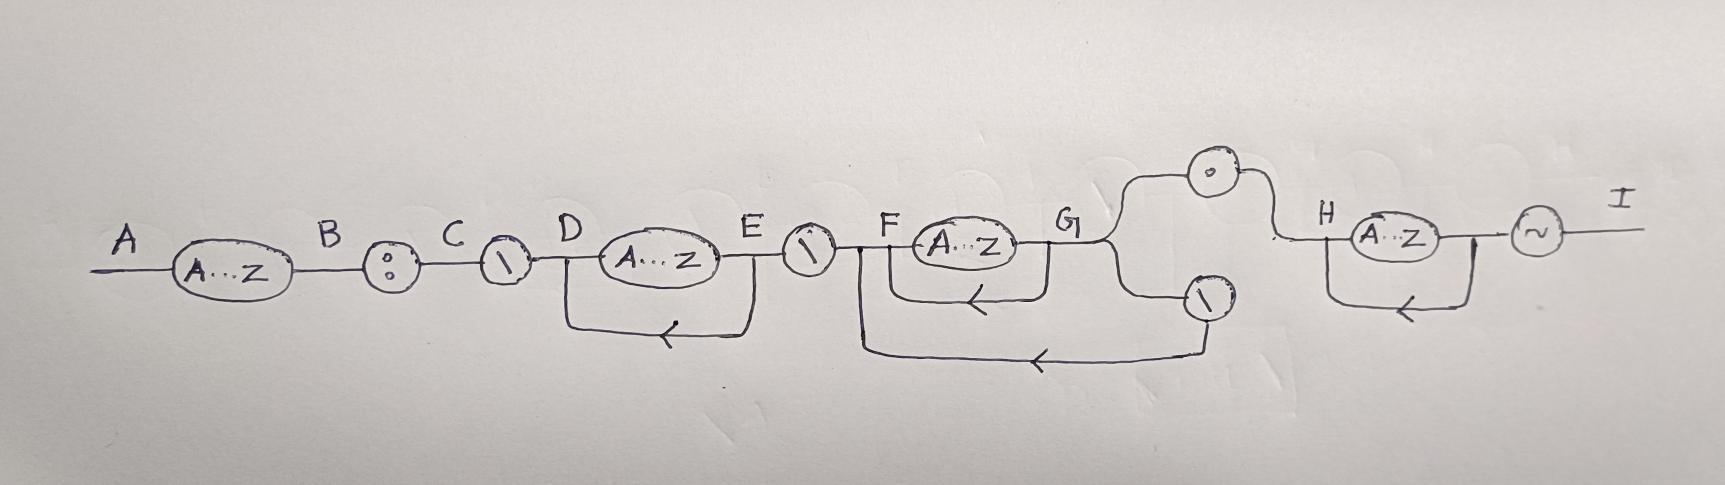 A A...Z B : C \ D A...Z E \ F A...Z G . H A...Z ~ I
\